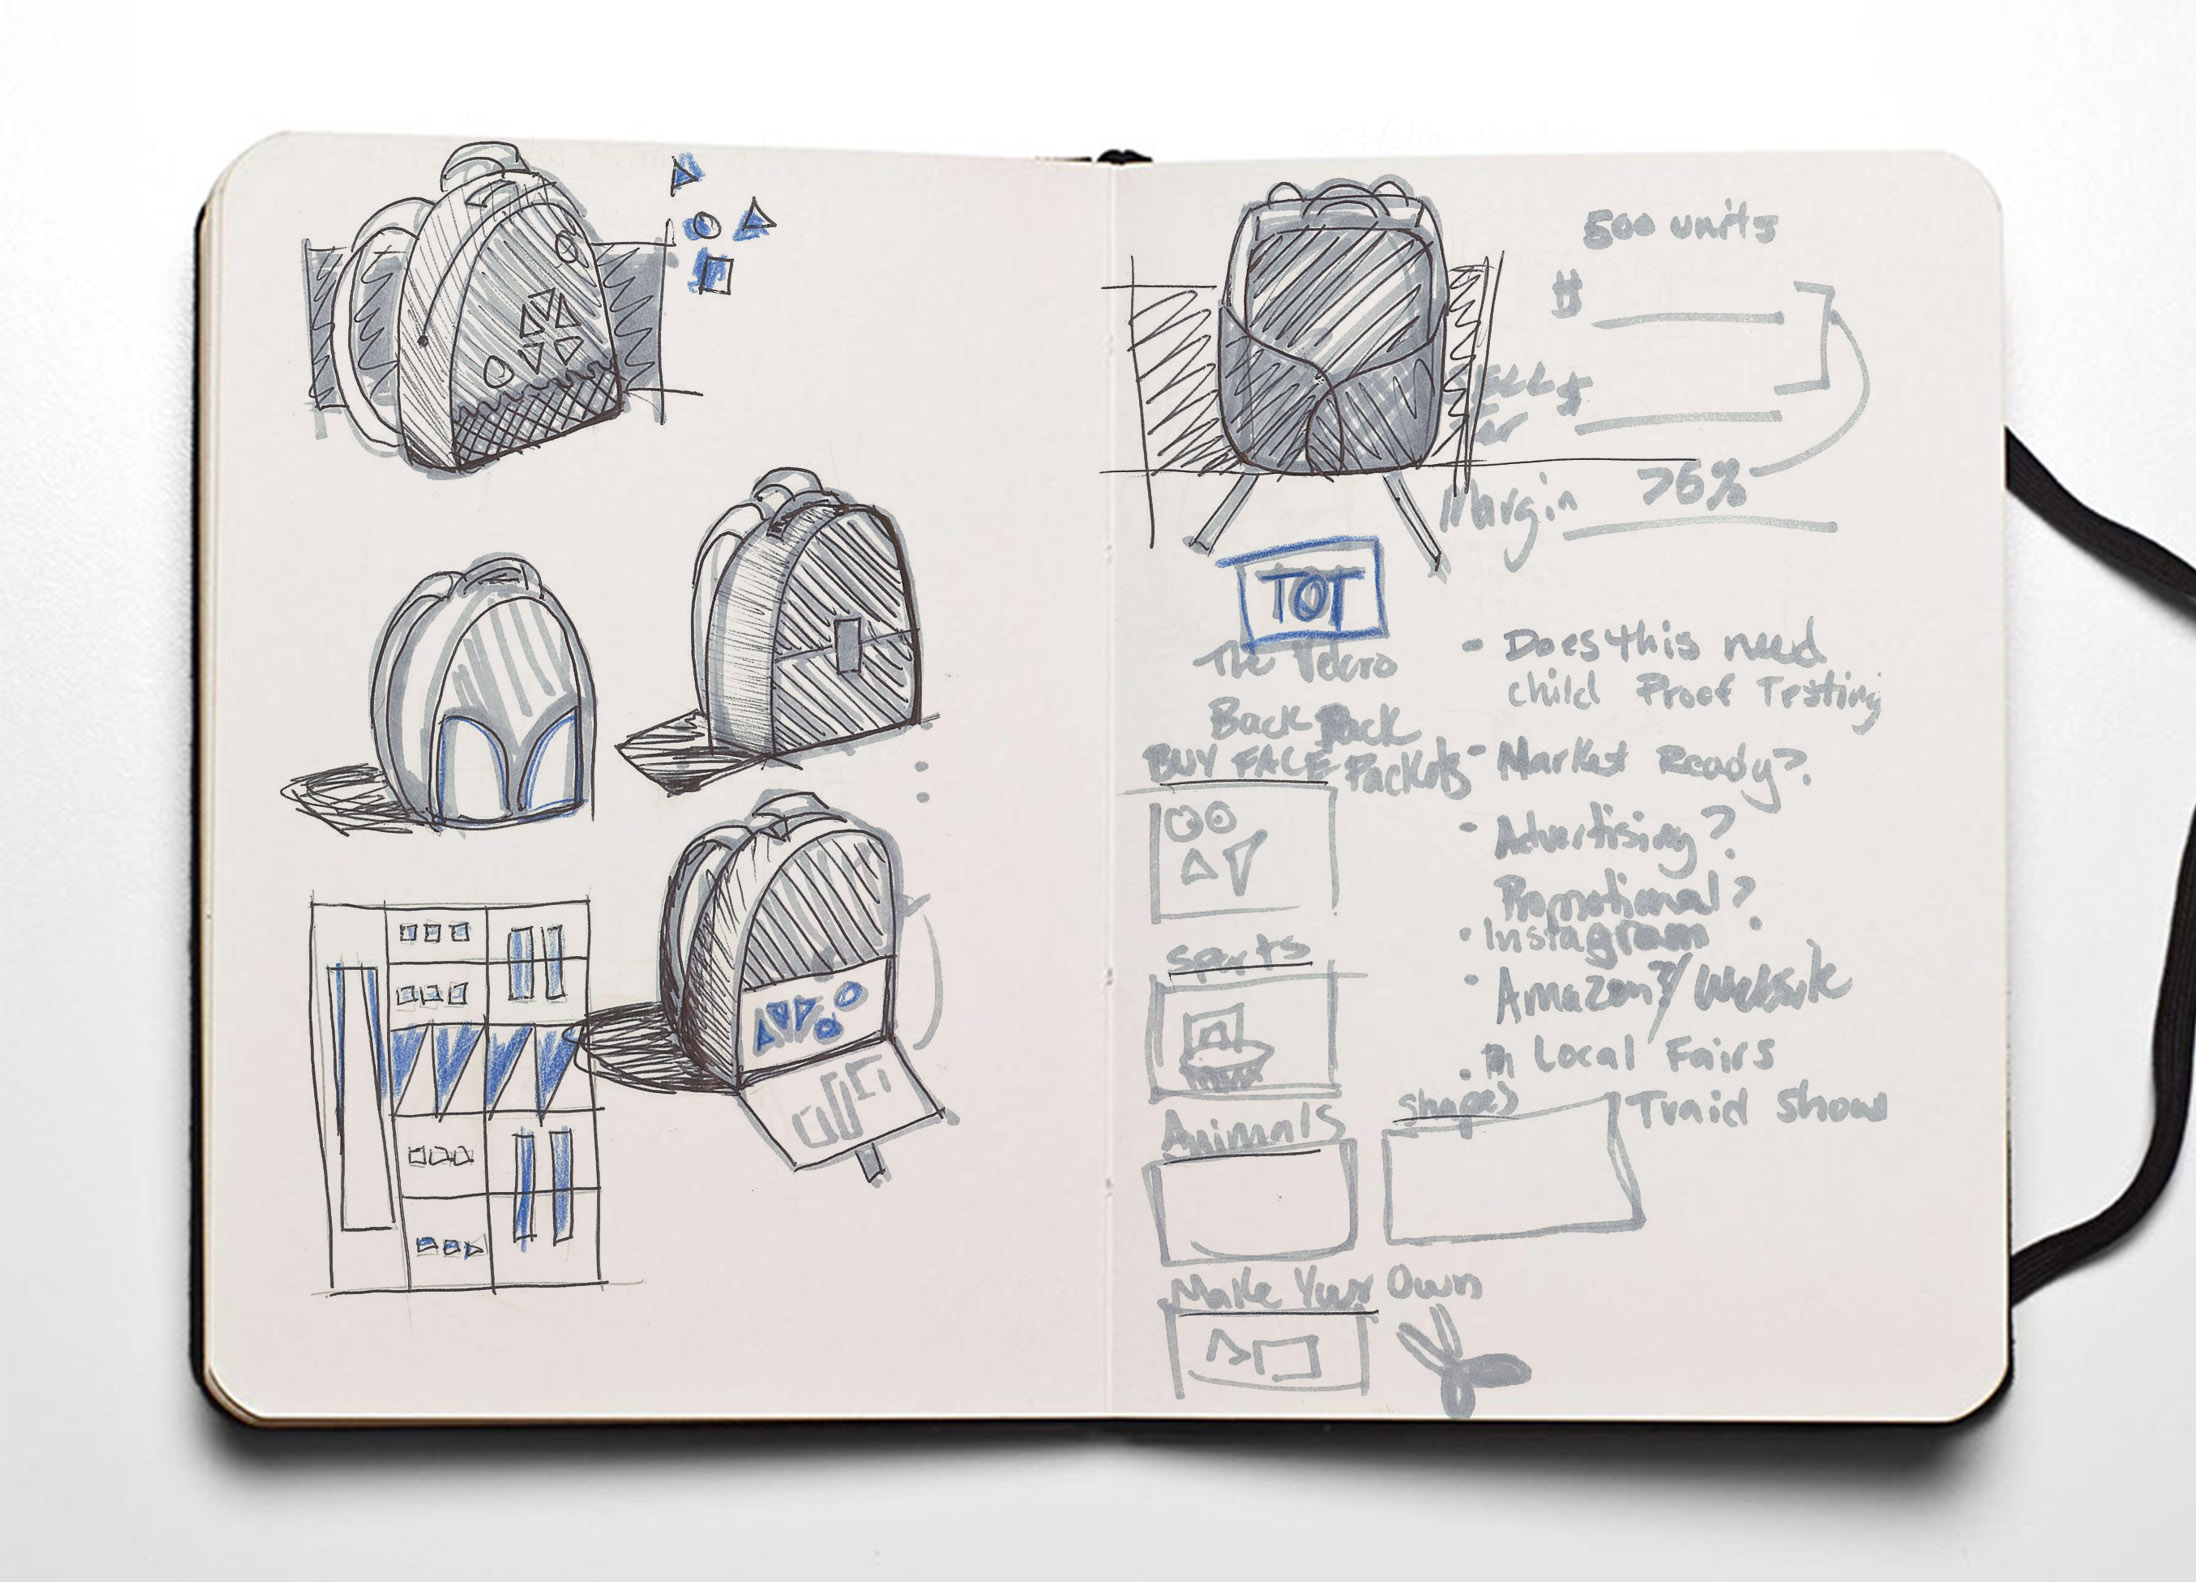 500 units
$
$
Margin >6%
TOT
The Velcro
Back Pack
BUY FACE Packets
Sports
Animals
shapes
Make Your Own
- Does this need
child Proof Testing
- Market Ready?
- Advertising?
Promotional?
· Instagram
· Amazon?/Website
· Local Fairs
Traid Show